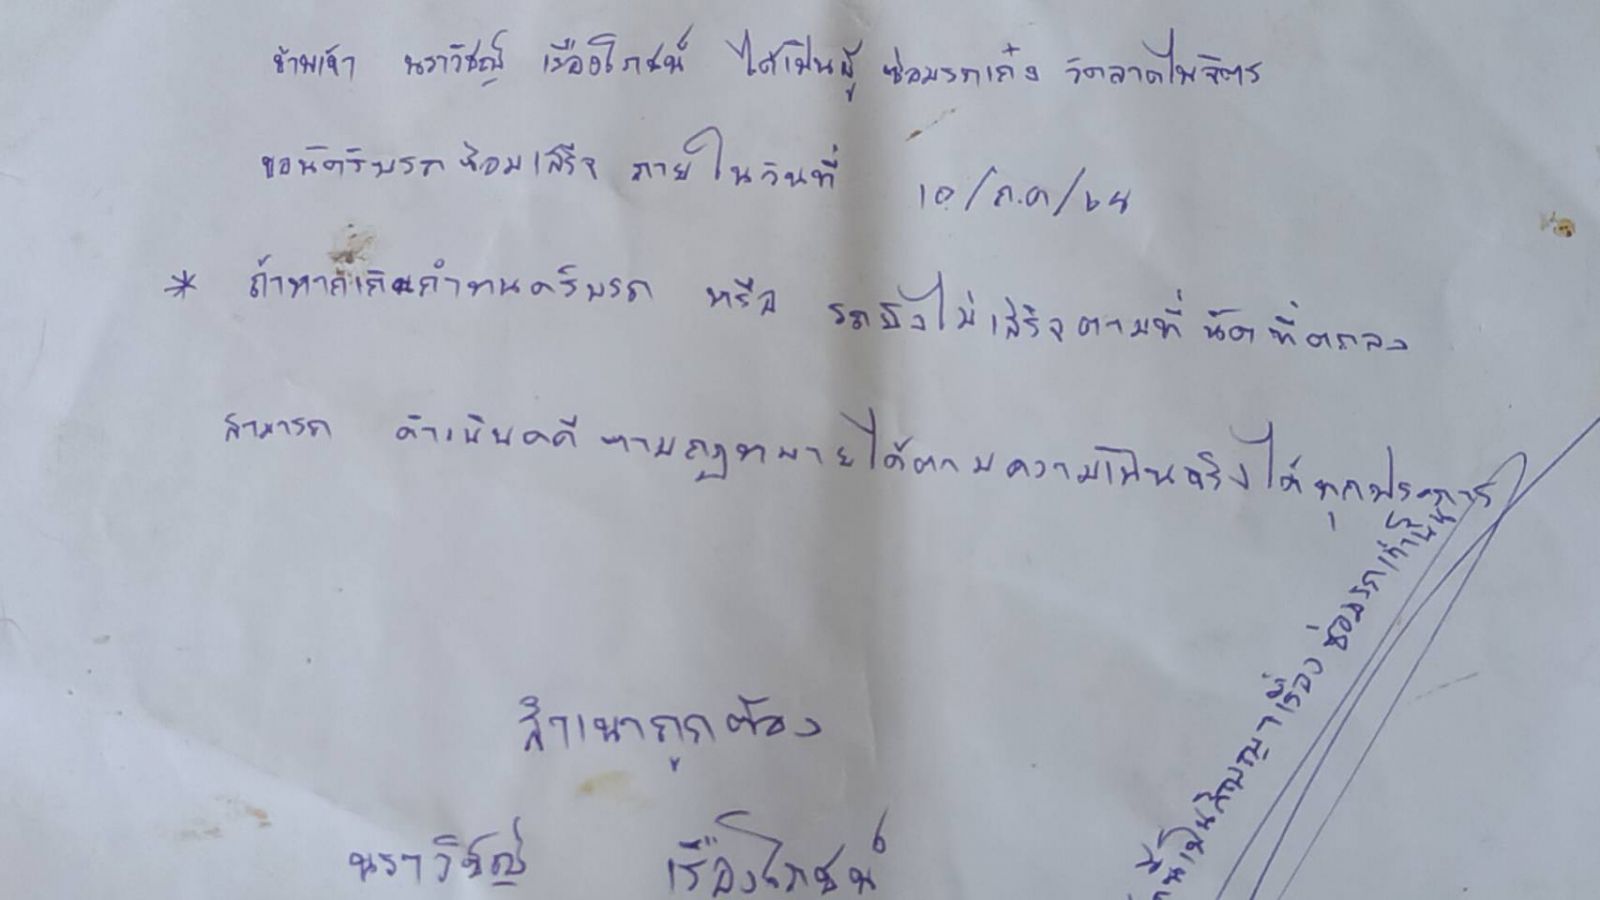 ข้าพเจ้า นราวิชญ์ เรืองโภชน์ ได้เป็นผู้ ซ่อมรถเก๋ง วัดลาดไพจิตร
ขอนัดรับรถซ่อมเสร็จ ภายในวันที่ 10/ก.ค/64
* ถ้าหากเกินกำหนดรับรถ หรือ รถยังไม่เสร็จตามที่นัดที่ตกลง
สามารถ ดำเนินคดี ตามกฎหมายได้ตามความเป็นจริงได้ทุกประการ
สำเนาถูกต้อง
นราวิชญ์ เรืองโภชน์
นี้เป็นสัญญาเรื่อง ซ่อมรถเท่านั้น